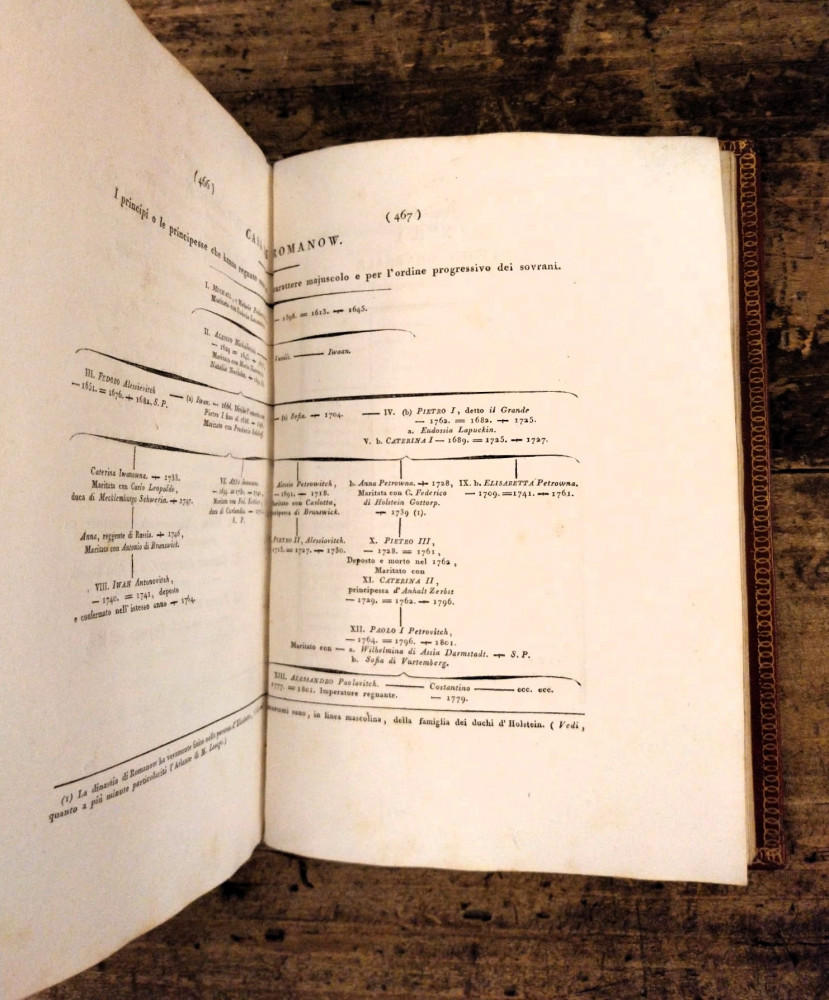 (466)
I principi o le principesse che hanno regnato
CASA
I. MICHELE,
Maritato con
II. ALESSIO Michelovitch
— 1629 = 1645.
Maritato con Maria
Natalia
III. FEDORO Alessievitch
— 1661. = 1676. + 1682. S. P.
— (a) Iwan. — 1666.
Pietro I fino al
Maritato con Prascovia
Caterina Iwanowna. + 1733.
Maritata con Carlo Leopoldo,
duca di Mecklemburgo Schwerin. + 1747.
VI. ANNA Iwanowna
Maritata con Fed.
duca di Curlandia
S. P.
Anna, reggente di Russia. + 1746,
Maritata con Antonio di Brunswick.
VIII. IWAN Antonovitch,
— 1740. = 1741, deposto
e confermato nell' istesso anno + 1764.
(1) La dinastia di Romanow ha veramente finito nella persona d'Elisabetta,
quanto a più minute particolarità l'Atlante di M. Lesage.)
(467)
ROMANOW.
carattere majuscolo e per l'ordine progressivo dei sovrani.
— 1598. = 1613. + 1645.
— Iwaan.
— (a) Sofia. + 1704.
— IV. (b) PIETRO I, detto il Grande
— 1762. = 1682. + 1725.
a. Eudossia Lapuckin.
V. b. CATERINA I — 1689. = 1725. + 1727.
Alessio Petrowitch,
— 1691. + 1718.
Maritato con Carlotta,
principessa di Brunswick.
b. Anna Petrowna. + 1728,
Maritata con C. Federico
di Holstein Gottorp.
+ 1739 (1).
IX. b. ELISABETTA Petrowna.
— 1709. = 1741. + 1761.
PIETRO II, Alessiovitch.
1715. = 1727. + 1730.
X. PIETRO III,
— 1728. = 1761,
Deposto e morto nel 1762,
Maritato con
XI. CATERINA II,
principessa d'Anhalt Zerbst
— 1729. = 1762. + 1796.
XII. PAOLO I Petrovitch,
— 1764. = 1796. + 1801.
Maritato con — a. Wilhelmina di Assia Darmstadt. + S. P.
b. Sofia di Vurtemberg.
XIII. ALESSANDRO Paolovitch. — Costantino — ecc. ecc.
1777. = 1801. Imperatore regnante. — 1779.
sono, in linea mascolina, della famiglia dei duchi d'Holstein. ( Vedi,